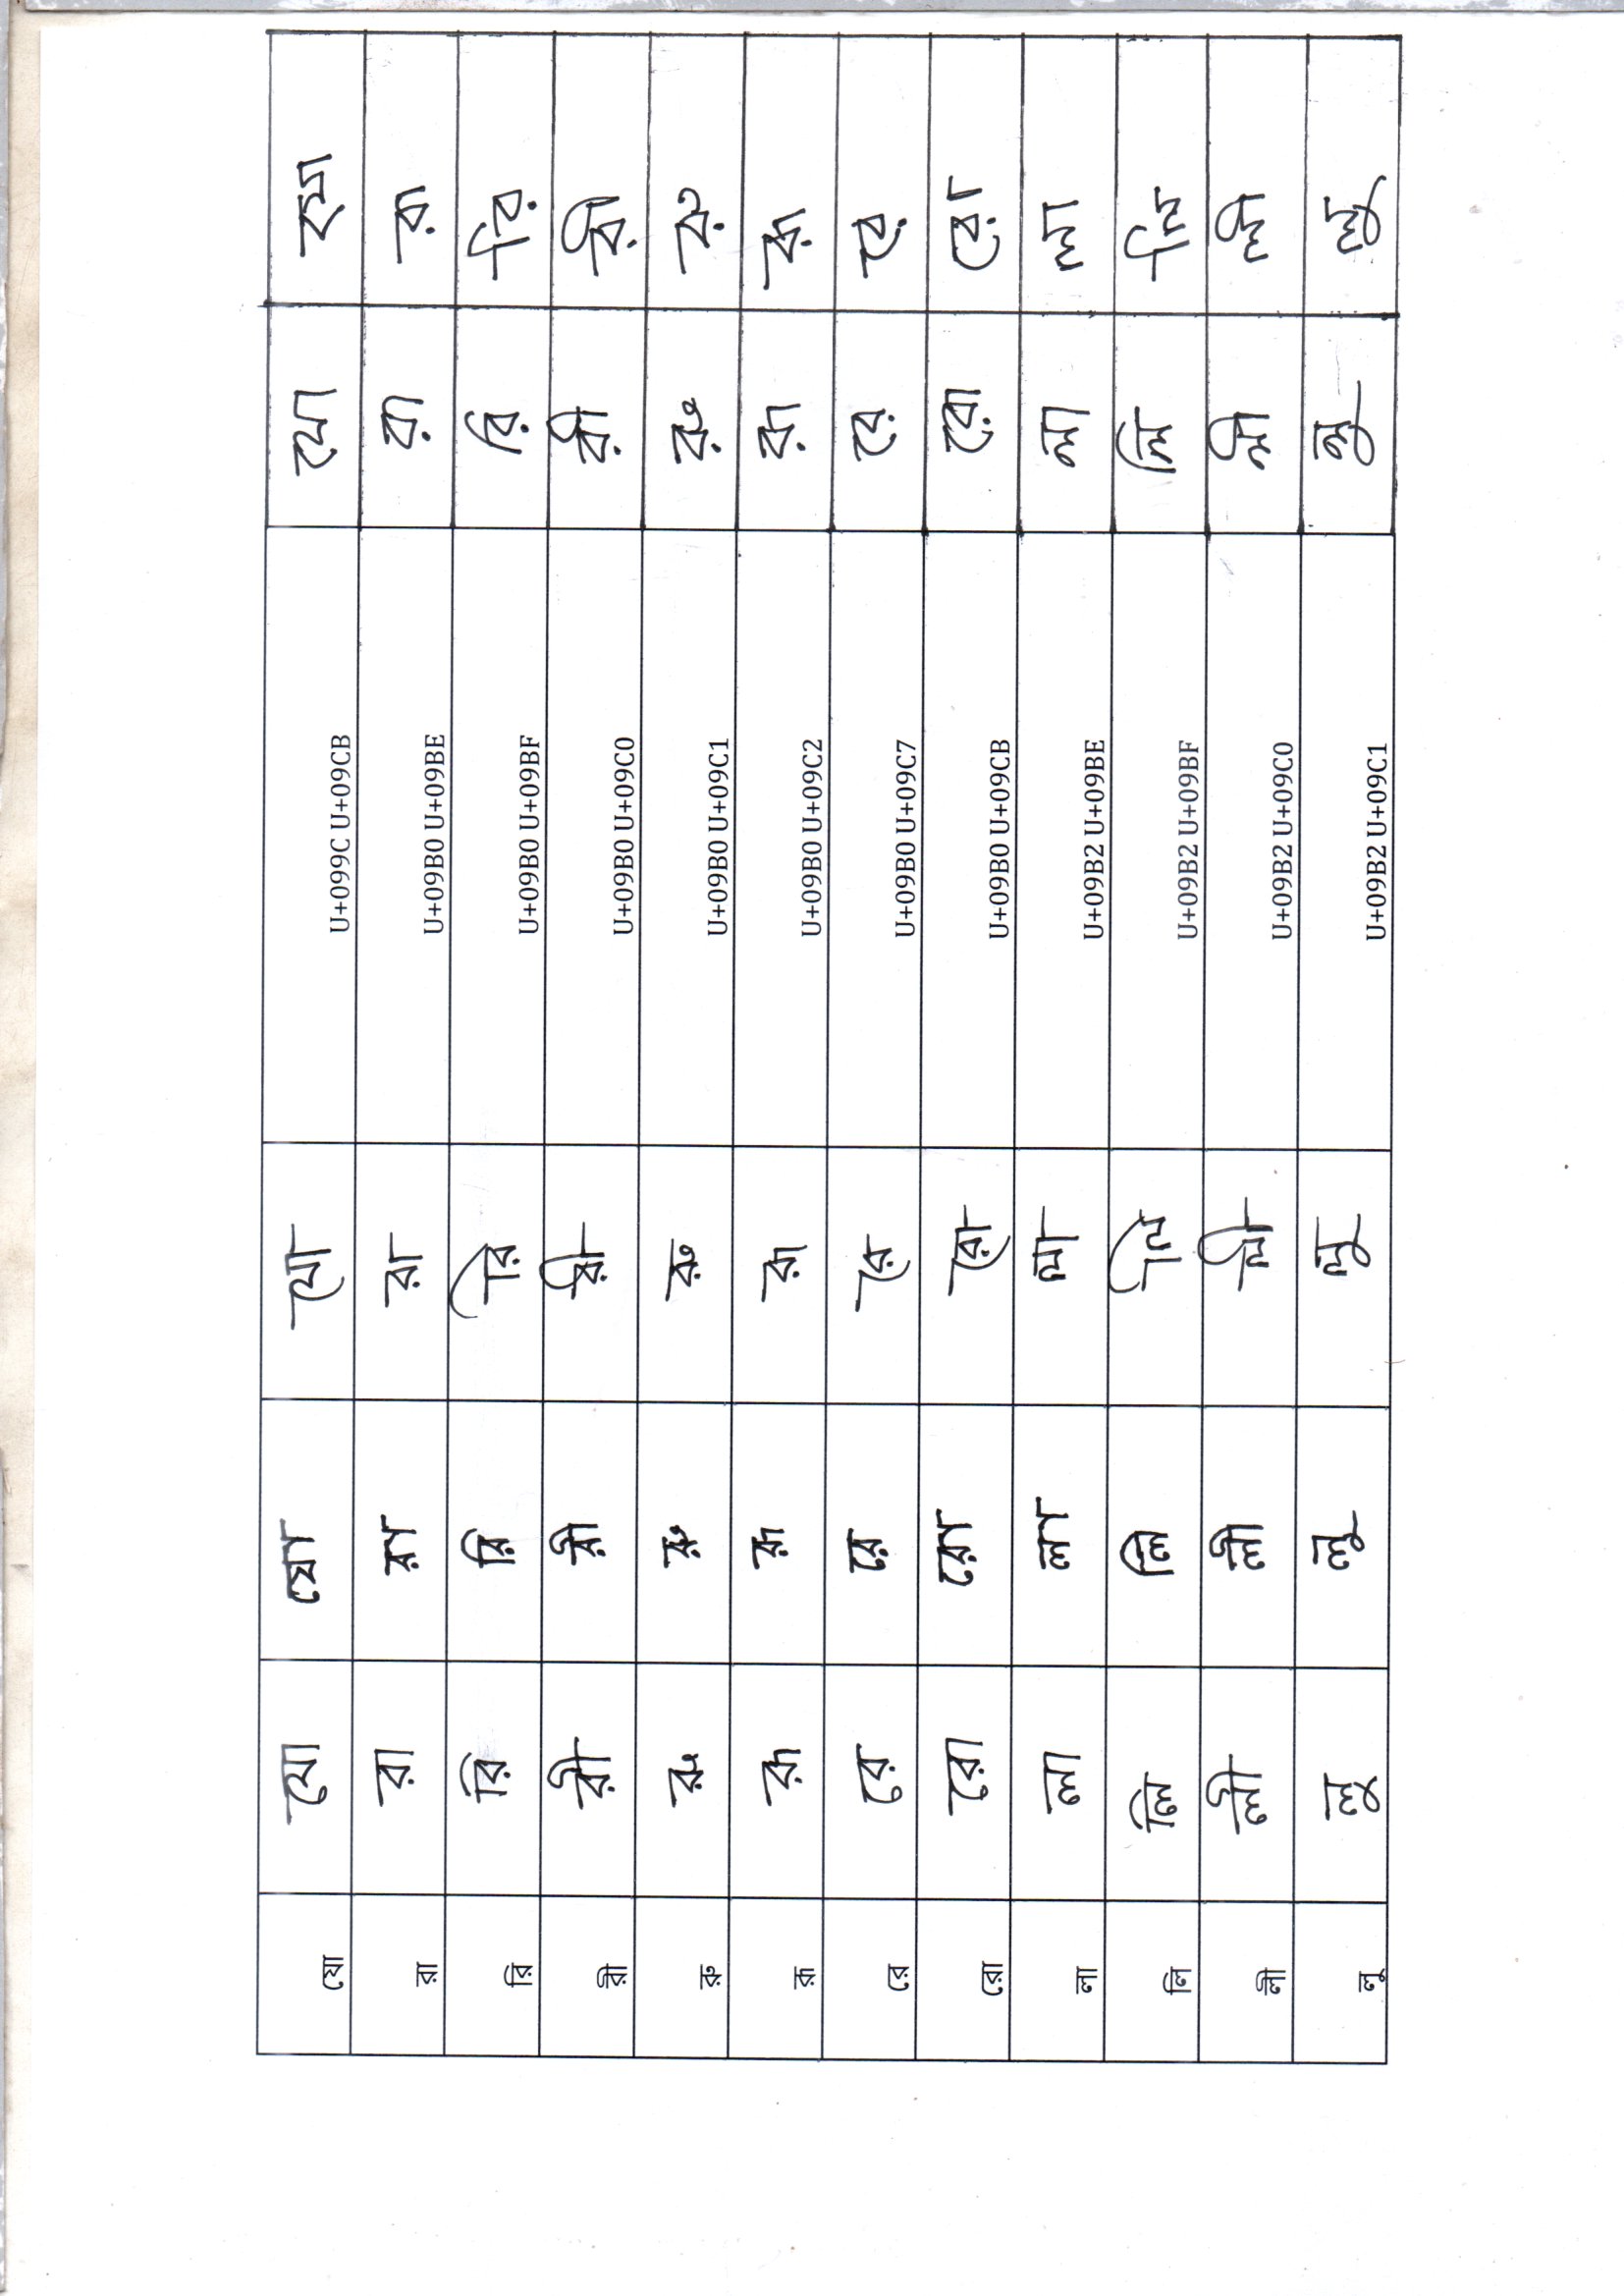 যো যো যো যো U+099C U+09CB যো যো
রা রা রা রা U+09B0 U+09BE রা রা
রি রি রি রি U+09B0 U+09BF রি রি
রী রী রী রী U+09B0 U+09C0 রী রী
রু রু রু রু U+09B0 U+09C1 রু রু
রূ রূ রূ রূ U+09B0 U+09C2 রূ রূ
রে রে রে রে U+09B0 U+09C7 রে রে
রো রো রো রো U+09B0 U+09CB রো রো
লা লা লা লা U+09B2 U+09BE লা লা
লি লি লি লি U+09B2 U+09BF লি লি
লী লী লী লী U+09B2 U+09C0 লী লী
লু লু লু লু U+09B2 U+09C1 লু লু